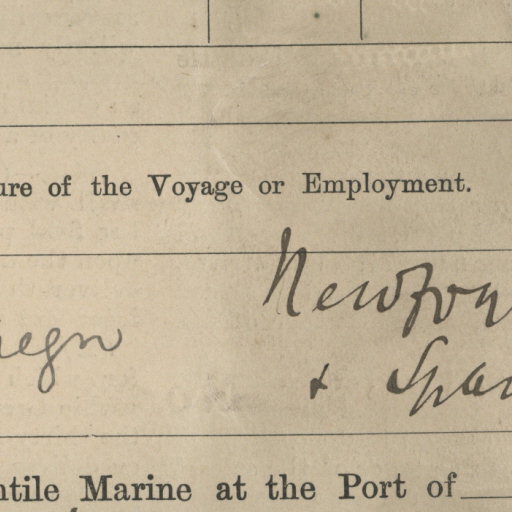 ure of the Voyage or Employment.
Newfou
eign
& Spai
ntile Marine at the Port of